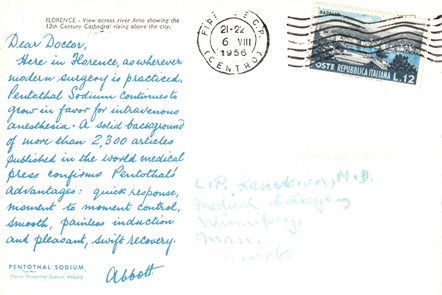 FLORENCE - View across river Arno showing the
13th Century Cathedral rising above the city.
Dear Doctor,
Here in Florence, as wherever
modern surgery is practiced,
Pentathal Sodium continues to
grow in favor for intravenous
anesthesia. A solid background
of more than 2,300 articles
published in the world medical
press confirms Pentothal's
advantages: quick response,
moment to moment control,
smooth, painless induction
and pleasant, swift recovery.
Abbott
PENTOTHAL SODIUM
Abbott)
FIRENZE C.P.
21-22
6 VIII
1956
(CENTRO)
POSTE REPUBBLICA ITALIANA L.12
M.D.
Medical College,
Winnipeg,
Man.
Canada